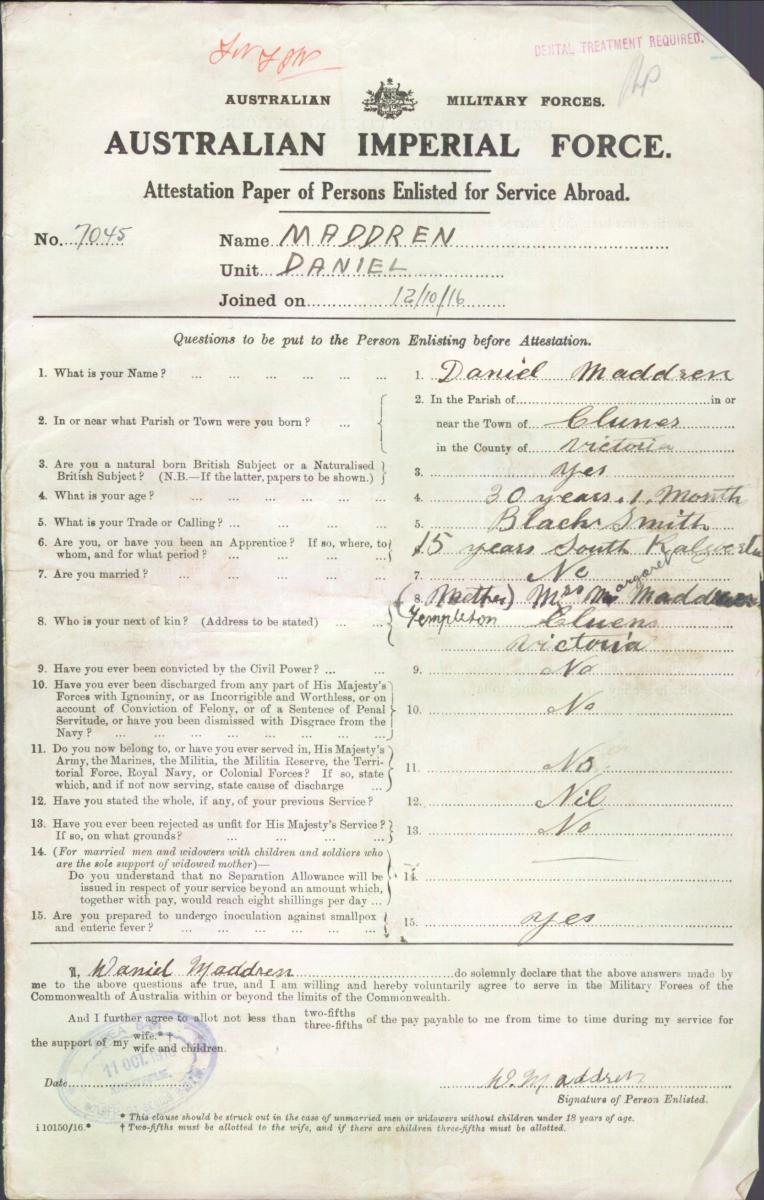 DENTAL TREATMENT REQUIRED.
AUSTRALIAN MILITARY FORCES.
AUSTRALIAN IMPERIAL FORCE.
Attestation Paper of Persons Enlisted for Service Abroad.
No. 7045 Name MADDREN
Unit DANIEL
Joined on 12/10/16
Questions to be put to the Person Enlisting before Attestation.
1. What is your Name? ... ... ... ... ... ... 1. Daniel Maddren
2. In or near what Parish or Town were you born? ... 2. In the Parish of in or
near the Town of Clunes
in the County of Victoria
3. Are you a natural born British Subject or a Naturalised
British Subject? (N.B.—If the latter, papers to be shown.) 3. Yes
4. What is your age? ... ... ... ... ... 4. 30 years. 1. Month
5. What is your Trade or Calling? ... ... ... ... 5. Black Smith
6. Are you, or have you been an Apprentice? If so, where, to
whom, and for what period? ... ... ... ... 6. 5 years South Kalgoorlie
7. Are you married? ... ... ... ... ... ... 7. No
8. Who is your next of kin? (Address to be stated) ... ... 8. (Mother) Mrs Margaret Maddren
Templeton Cluens
Victoria
9. Have you ever been convicted by the Civil Power? ... ... 9. No
10. Have you ever been discharged from any part of His Majesty's
Forces with Ignominy, or as Incorrigible and Worthless, or on
account of Conviction of Felony, or of a Sentence of Penal
Servitude, or have you been dismissed with Disgrace from the
Navy? ... ... ... ... ... ... ... 10. No
11. Do you now belong to, or have you ever served in, His Majesty's
Army, the Marines, the Militia, the Militia Reserve, the Terri-
torial Force, Royal Navy, or Colonial Forces? If so, state
which, and if not now serving, state cause of discharge ... 11. No
12. Have you stated the whole, if any, of your previous Service? 12. Nil
13. Have you ever been rejected as unfit for His Majesty's Service?
If so, on what grounds? ... ... ... ... ... 13. No
14. (For married men and widowers with children and soldiers who
are the sole support of widowed mother)—
Do you understand that no Separation Allowance will be
issued in respect of your service beyond an amount which,
together with pay, would reach eight shillings per day ... 14.
15. Are you prepared to undergo inoculation against smallpox
and enteric fever? ... ... ... ... ... ... 15. yes
I, Daniel Maddren do solemnly declare that the above answers made by
me to the above questions are true, and I am willing and hereby voluntarily agree to serve in the Military Forces of the
Commonwealth of Australia within or beyond the limits of the Commonwealth.
And I further agree to allot not less than two-fifths three-fifths of the pay payable to me from time to time during my service for
the support of my wife.* † wife and children.
11 OCT
Date D. Maddren
Signature of Person Enlisted.
* This clause should be struck out in the case of unmarried men or widowers without children under 18 years of age.
i 10150/16.* † Two-fifths must be allotted to the wife, and if there are children three-fifths must be allotted.